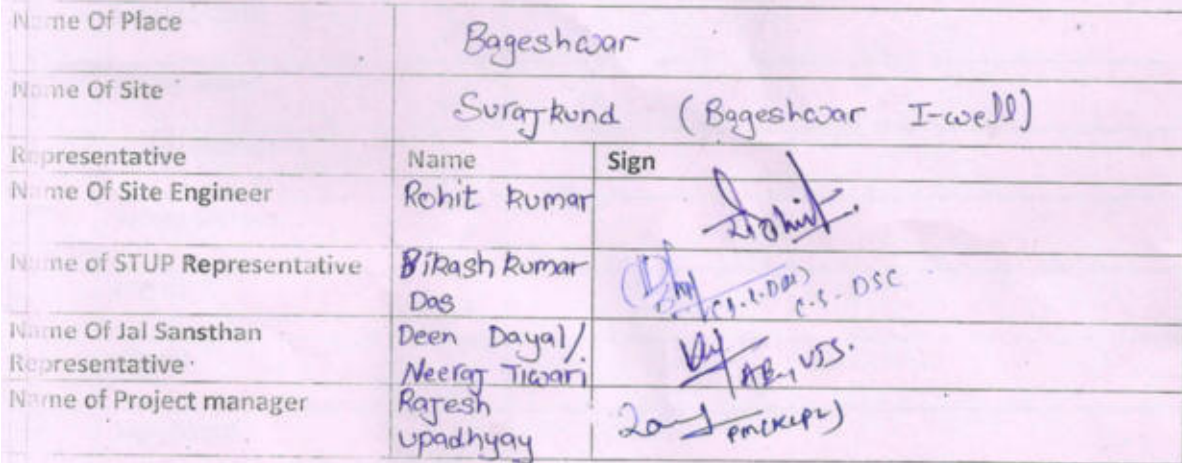 Name Of Place Bageshwar
Name Of Site Surajkund (Bageshwar I-well)
Representative Name Sign
Name Of Site Engineer Rohit Kumar Rohit
Name of STUP Representative Bikash Kumar
Das C.S-DSC
Name Of Jal Sansthan Deen Dayal/
Representative Neeraj Tiwari AE, UJS.
Name of Project manager Rajesh
Upadhyay PM(KCPL)